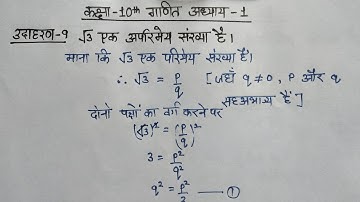 कक्षा-10th गणित अध्याय-1
उदाहरण-9 √3 एक अपरिमेय संख्या है।
माना कि √3 एक परिमेय संख्या है।
∴ √3 = p/q [जहाँ q ≠ 0, P और q
सह अभाज्य हैं]
दोनो पक्षों का वर्ग करने पर
(√3)² = (p/q)²
3 = p²/q²
q² = p²/3 —— ①